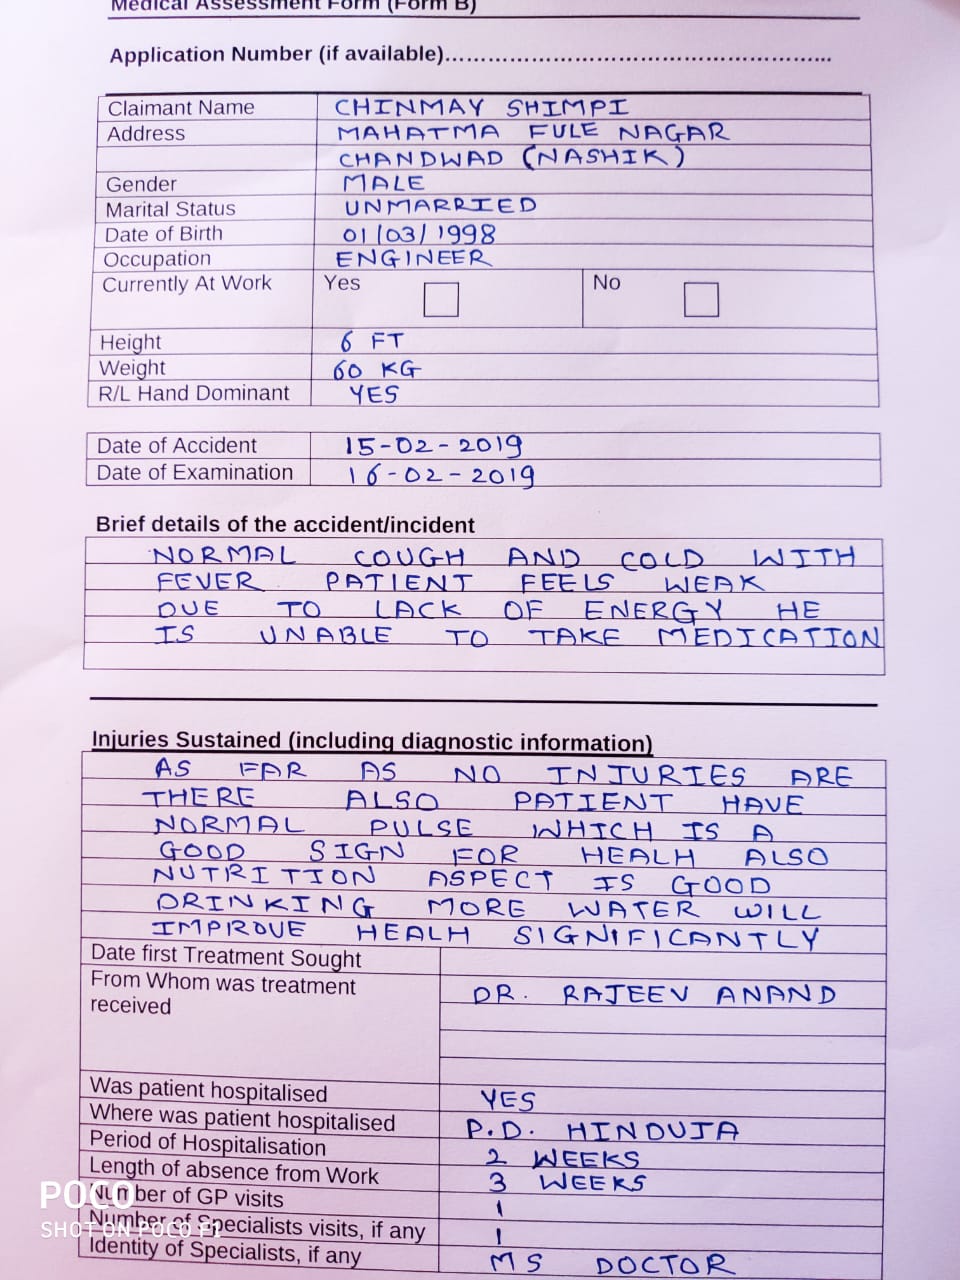 Medical Assessment Form (Form B)
Application Number (if available)………………………………………………...
Claimant Name CHINMAY SHIMPI
Address MAHATMA FULE NAGAR
CHANDWAD (NASHIK)
Gender MALE
Marital Status UNMARRIED
Date of Birth 01/03/1998
Occupation ENGINEER
Currently At Work Yes No
Height 6 FT
Weight 60 KG
R/L Hand Dominant YES
Date of Accident 15-02-2019
Date of Examination 16-02-2019
Brief details of the accident/incident
NORMAL COUGH AND COLD WITH
FEVER PATIENT FEELS WEAK
DUE TO LACK OF ENERGY HE
IS UNABLE TO TAKE MEDICATION
Injuries Sustained (including diagnostic information)
AS FAR AS NO INJURIES ARE
THERE ALSO PATIENT HAVE
NORMAL PULSE WHICH IS A
GOOD SIGN FOR HEALH ALSO
NUTRITION ASPECT IS GOOD
DRINKING MORE WATER WILL
IMPROVE HEALH SIGNIFICANTLY
Date first Treatment Sought
From Whom was treatment
received DR. RAJEEV ANAND
Was patient hospitalised YES
Where was patient hospitalised P.D. HINDUJA
Period of Hospitalisation 2 WEEKS
Length of absence from Work 3 WEEKS
Number of GP visits 1
Number of Specialists visits, if any 1
Identity of Specialists, if any MS DOCTOR
POCO
SHOT ON POCO F1